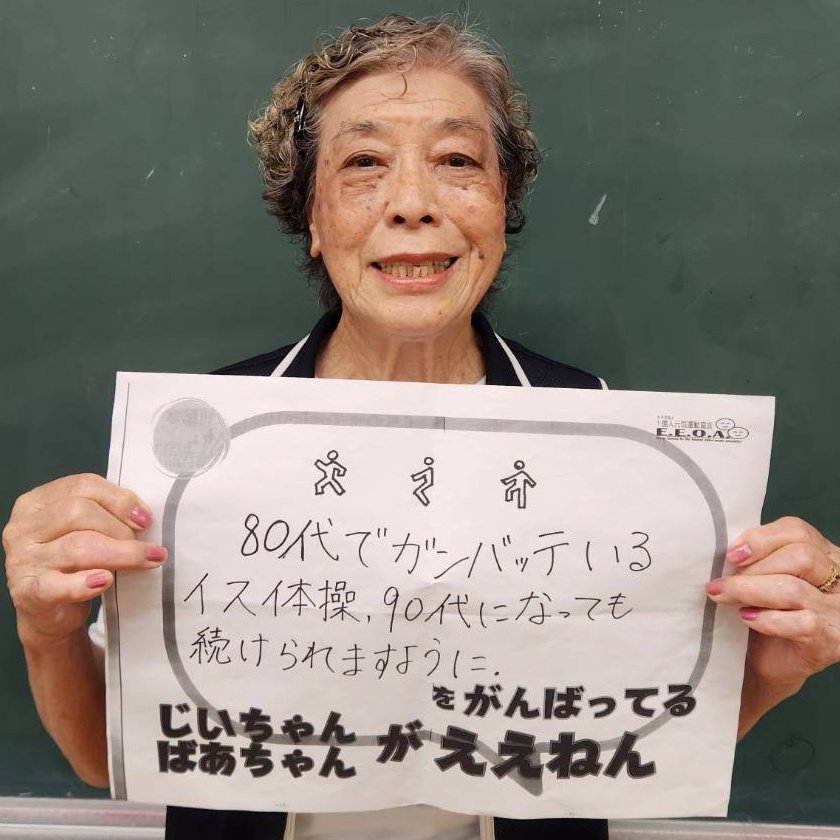 １億人元気運動協会
E.E.O.A.
80代でガンバッテいる
イス体操,90代になっても
続けられますように.
をがんばってる
じいちゃん
ばあちゃん が ええねん